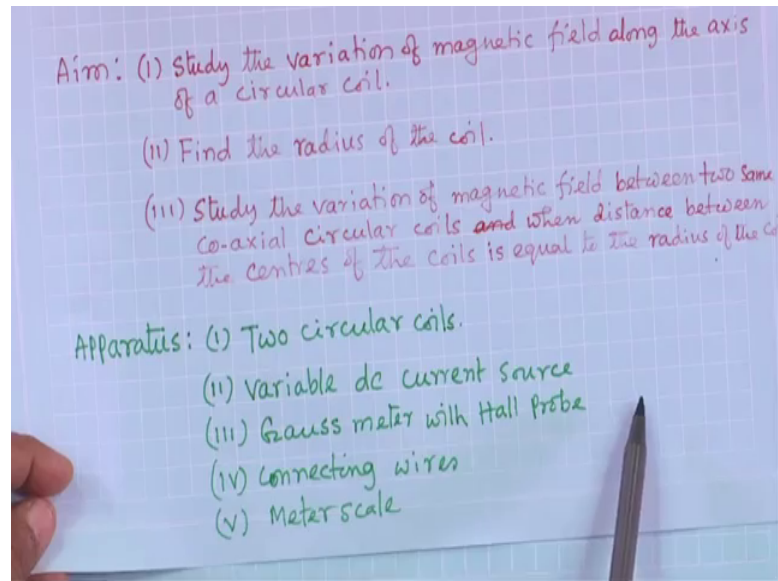 Aim: (i) Study the variation of magnetic field along the axis
of a circular coil.
(ii) Find the radius of the coil.
(iii) Study the variation of magnetic field between two same
co-axial circular coils and when distance between
the centres of the coils is equal to the radius of the
Apparatus: (i) Two circular coils.
(ii) Variable dc current source
(iii) Gauss meter with Hall Probe
(iv) Connecting wires
(v) Meter scale